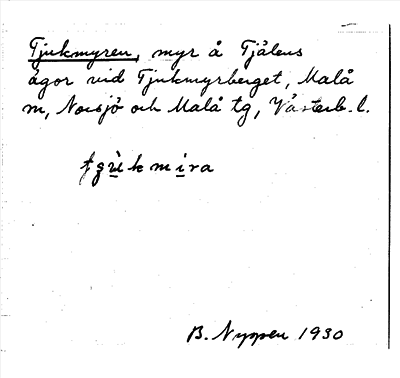 Tjukmyren, myr å Tjålens
ägor vid Tjukmyrberget, Malå
m, Norsjö och Malå tg, Västerb. l.
B. Nyppen 1930